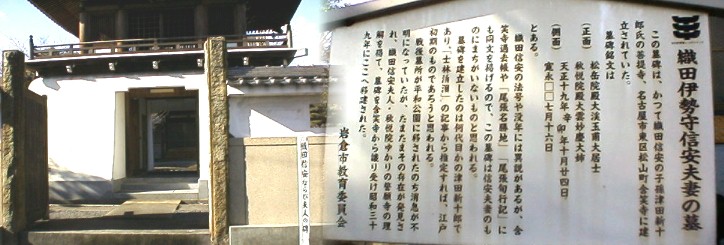 織田伊勢守信安夫妻の墓
この墓碑は、かつて織田信安の子孫津田新十
郎氏の菩提寺、名古屋市東区松山町含笑寺に建
立されていた。
墓碑銘文は
(正面) 松岳院殿大渓玉甫大居士
秋悦院殿大雲妙慶大姉
(側面) 天正十九年辛卯年十月廿四日
寛永□□七月十六日
とある。
織田信安の法号や没年には異説があるが、含
笑寺過去帳や「尾張名勝地」「尾張旬行記」に
も同文を掲げるので、この墓碑は信安夫妻のも
のにまちがいないものと思われる。
墓碑を建立したのは何代目かの津田新十郎で
あり、「士林泝洄」の記事から推定すれば、江戸
初期のものであろうと思われる。
戦後墓所が平和公園に移されたのち消息が不
明になっていたが、たまたまその存在が発見さ
れ、織田信安夫人・秋悦院ゆかりの誓願寺の理
解を得て、墓碑を含笑寺から譲り受け昭和三十
九年にここへ移建された。
岩倉市教育委員会
織田信安ならび夫人の碑